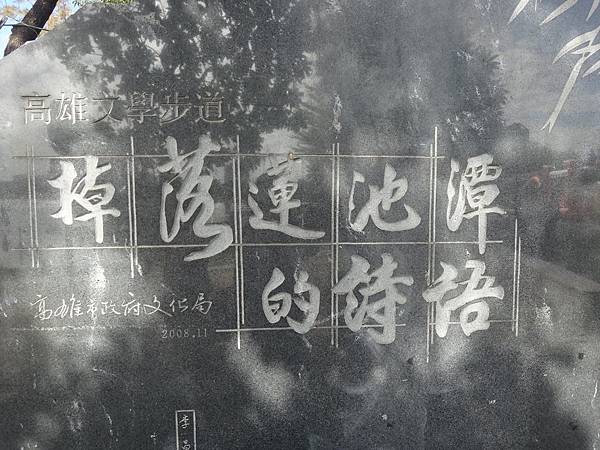 高雄文學步道
掉落蓮池潭
的詩語
高雄市政府文化局
2008.11
李